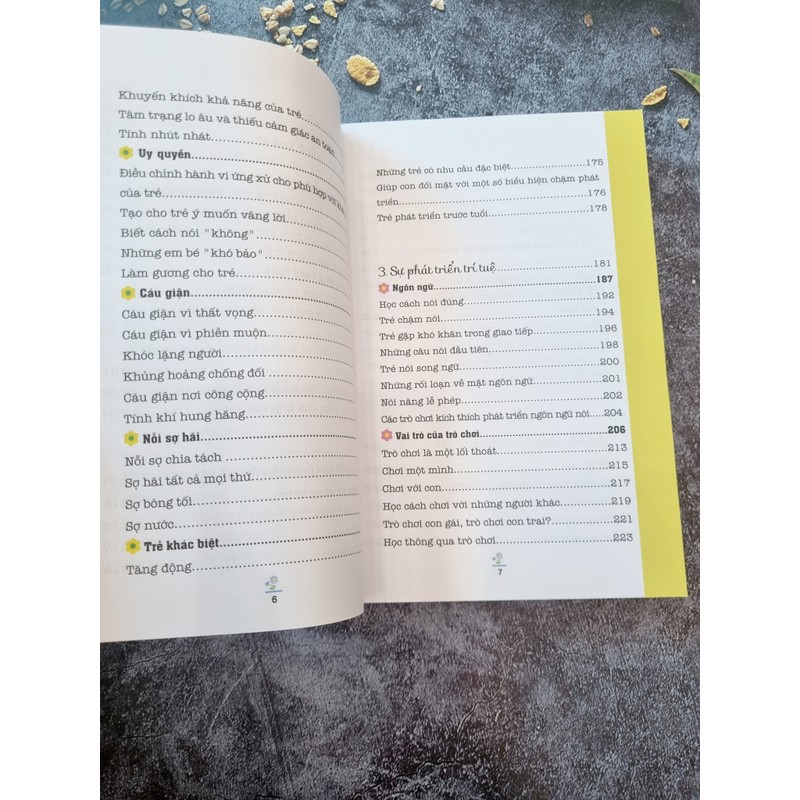 Khuyến khích khả năng của trẻ
Tâm trạng lo âu và thiếu cảm giác an toàn
Tính nhút nhát
Uy quyền
Điều chỉnh hành vi ứng xử cho phù hợp với
của trẻ
Tạo cho trẻ ý muốn vâng lời
Biết cách nói "không"
Những em bé "khó bảo"
Làm gương cho trẻ
Cáu giận
Cáu giận vì thất vọng
Cáu giận vì phiền muộn
Khóc lặng người
Khủng hoảng chống đối
Cáu giận nơi công cộng
Tính khí hung hăng
Nỗi sợ hãi
Nỗi sợ chia tách
Sợ hãi tất cả mọi thứ
Sợ bóng tối
Sợ nước
Trẻ khác biệt
Tăng động
6
Những trẻ có nhu cầu đặc biệt 175
Giúp con đối mặt với một số biểu hiện chậm phát
triển 176
Trẻ phát triển trước tuổi 178
3. Sự phát triển trí tuệ 181
Ngôn ngữ 187
Học cách nói đúng 192
Trẻ chậm nói 194
Trẻ gặp khó khăn trong giao tiếp 196
Những câu nói đầu tiên 198
Trẻ nói song ngữ 200
Những rối loạn về mặt ngôn ngữ 201
Nói năng lễ phép 202
Các trò chơi kích thích phát triển ngôn ngữ nói 204
Vai trò của trò chơi 206
Trò chơi là một lối thoát 213
Chơi một mình 215
Chơi với con 217
Học cách chơi với những người khác 219
Trò chơi con gái, trò chơi con trai? 221
Học thông qua trò chơi 223
7